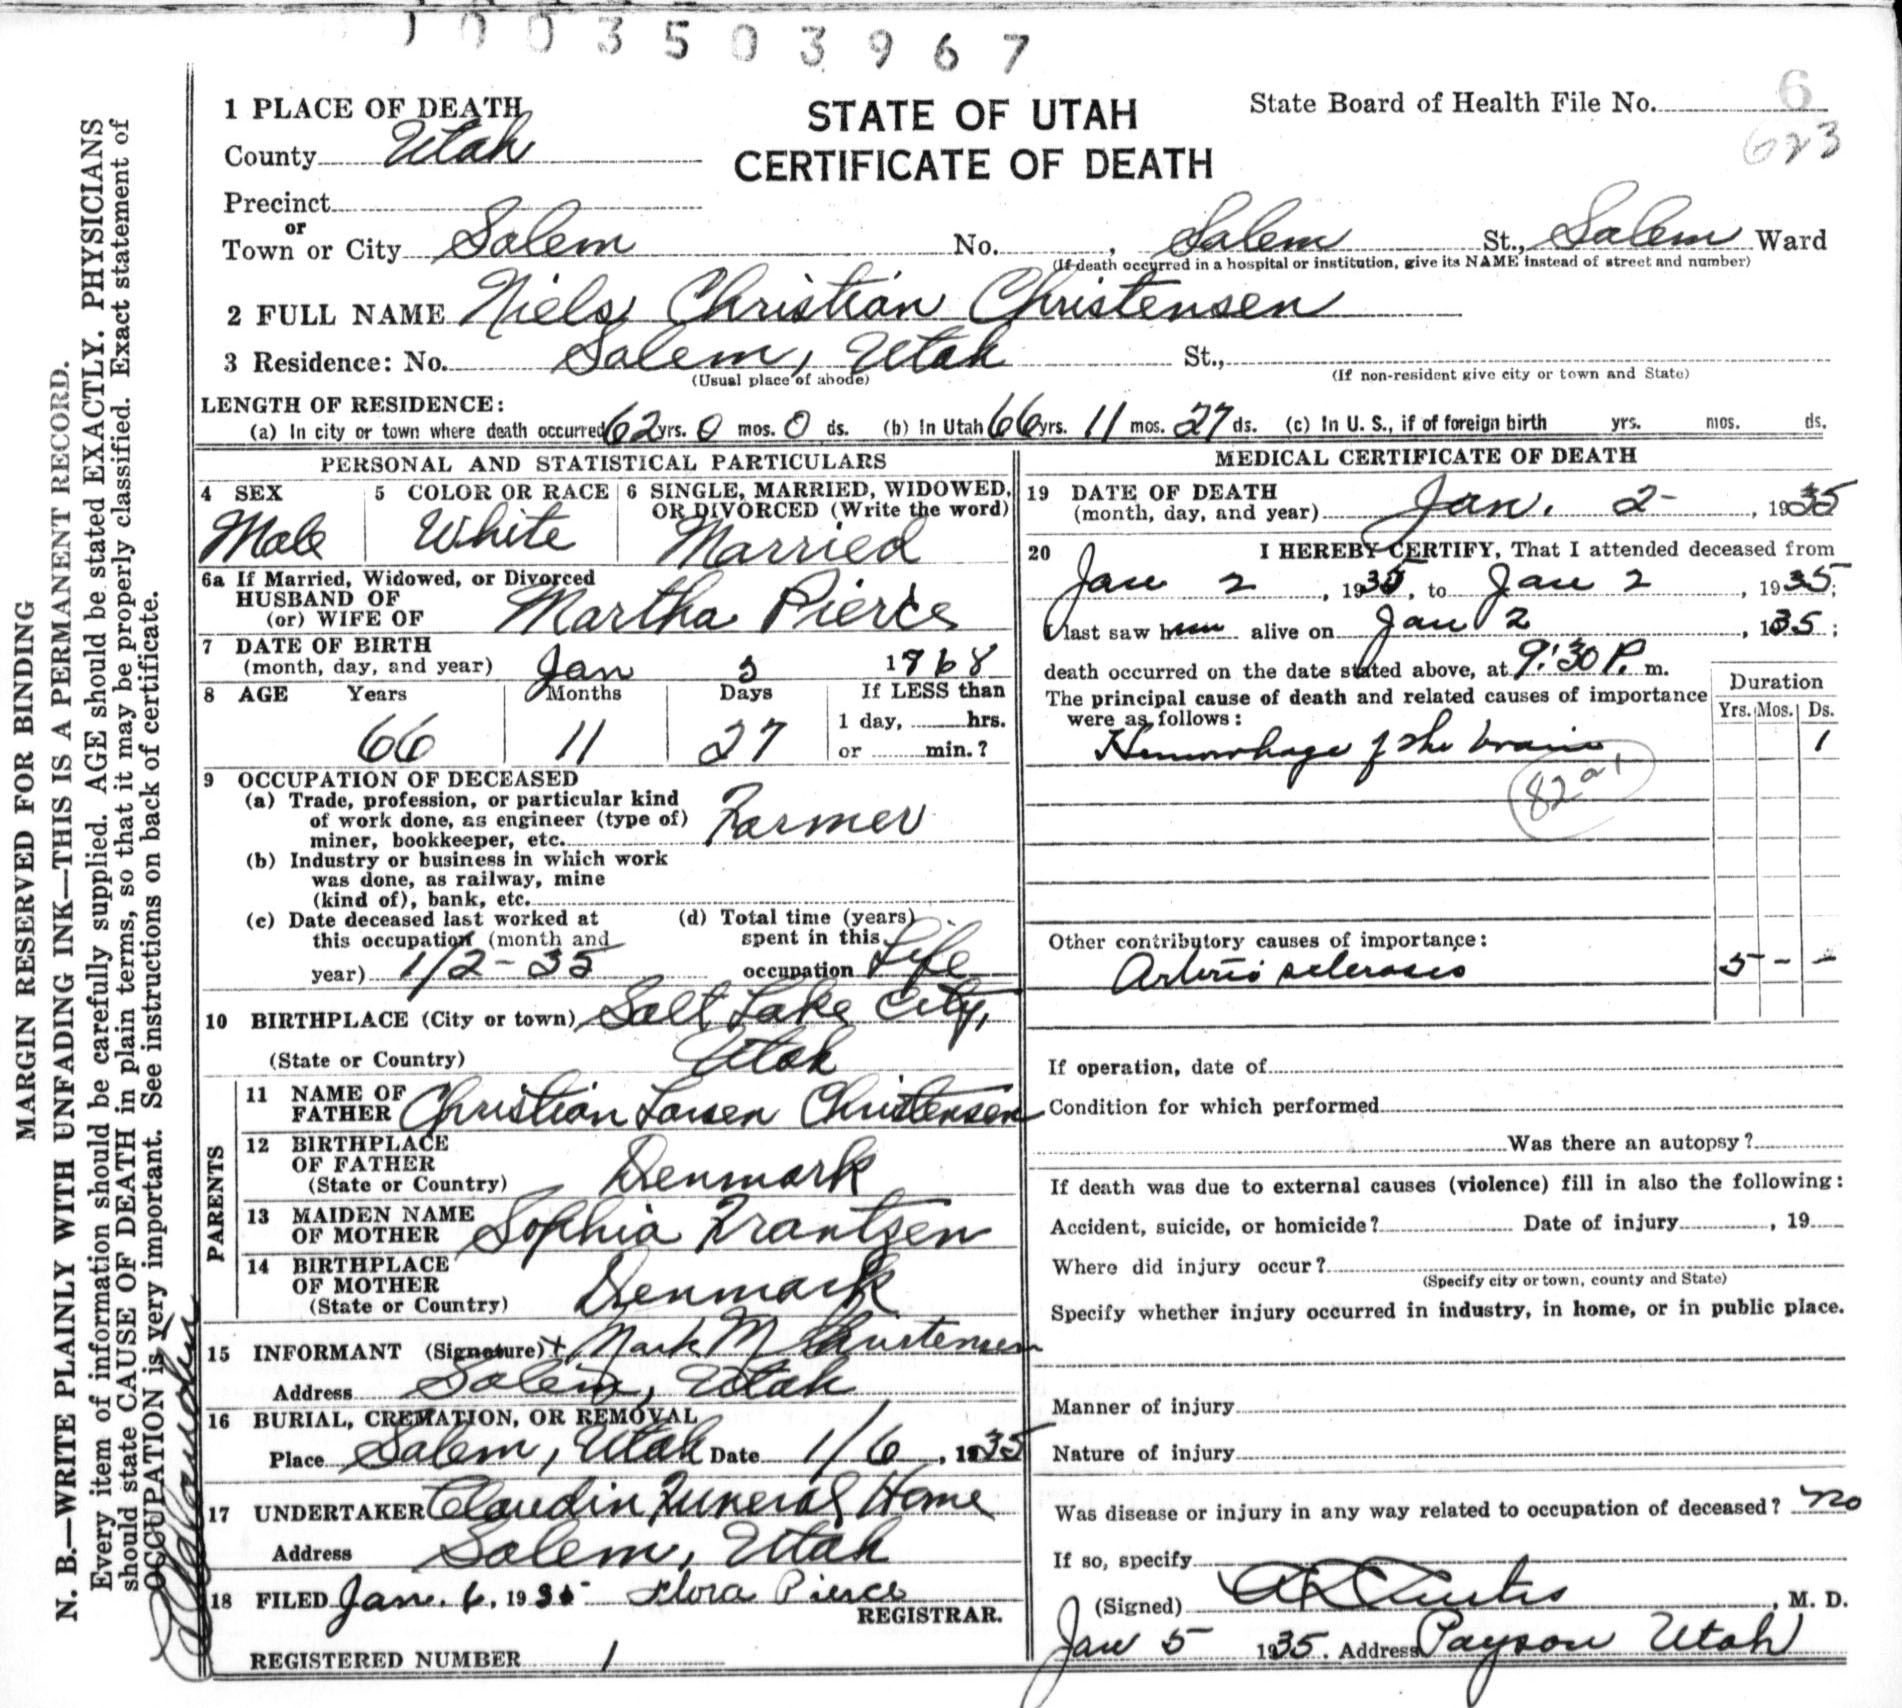 1003503967
1 PLACE OF DEATH
STATE OF UTAH
CERTIFICATE OF DEATH
State Board of Health File No. 6
623
County Utah
Precinct
or
Town or City Salem No. , Salem St., Salem Ward
(If death occurred in a hospital or institution, give its NAME instead of street and number)
2 FULL NAME Niels Christian Christensen
3 Residence: No. Salem, Utah St.,
(Usual place of abode) (If non-resident give city or town and State)
LENGTH OF RESIDENCE:
(a) In city or town where death occurred 62 yrs. 0 mos. 0 ds. (b) In Utah 66 yrs. 11 mos. 27 ds. (c) In U. S., if of foreign birth yrs. mos. ds.
PERSONAL AND STATISTICAL PARTICULARS
4 SEX
Male
5 COLOR OR RACE
White
6 SINGLE, MARRIED, WIDOWED,
OR DIVORCED (Write the word)
Married
6a If Married, Widowed, or Divorced
HUSBAND OF
(or) WIFE OF Martha Pierce
7 DATE OF BIRTH
(month, day, and year) Jan 3 1968
8 AGE Years Months Days If LESS than
1 day, hrs.
66 11 27 or min.?
9 OCCUPATION OF DECEASED
(a) Trade, profession, or particular kind
of work done, as engineer (type of)
miner, bookkeeper, etc. Farmer
(b) Industry or business in which work
was done, as railway, mine
(kind of), bank, etc.
(c) Date deceased last worked at
this occupation (month and
year) 1/2-35
(d) Total time (years)
spent in this
occupation Life
10 BIRTHPLACE (City or town) Salt Lake City,
(State or Country) Utah
PARENTS
11 NAME OF
FATHER Christian Larsen Christensen
12 BIRTHPLACE
OF FATHER
(State or Country) Denmark
13 MAIDEN NAME
OF MOTHER Sophia Frantzen
14 BIRTHPLACE
OF MOTHER
(State or Country) Denmark
15 INFORMANT (Signature) + Mark M Christensen
Address Salem, Utah
16 BURIAL, CREMATION, OR REMOVAL
Place Salem, Utah Date 1/6, 1935
17 UNDERTAKER Claudin Funeral Home
Address Salem, Utah
18 FILED Jan. 6, 1935 Flora Pierce
REGISTRAR.
REGISTERED NUMBER 1
MEDICAL CERTIFICATE OF DEATH
19 DATE OF DEATH
(month, day, and year) Jan. 2-, 1935
20 I HEREBY CERTIFY, That I attended deceased from
Jan 2, 1935, to Jan 2, 1935;
I last saw him alive on Jan 2, 1935;
death occurred on the date stated above, at 9:30 P. m.
The principal cause of death and related causes of importance
were as follows:
Duration
Yrs. Mos. Ds.
Hemorrhage of the brain 1
82a1
Other contributory causes of importance:
Arterio sclerosis 5 - -
If operation, date of
Condition for which performed
Was there an autopsy?
If death was due to external causes (violence) fill in also the following:
Accident, suicide, or homicide? Date of injury , 19
Where did injury occur?
(Specify city or town, county and State)
Specify whether injury occurred in industry, in home, or in public place.
Manner of injury
Nature of injury
Was disease or injury in any way related to occupation of deceased? no
If so, specify
(Signed) A L Curtis, M. D.
Jan 5 1935. Address Payson Utah
MARGIN RESERVED FOR BINDING
N. B.—WRITE PLAINLY WITH UNFADING INK—THIS IS A PERMANENT RECORD.
Every item of information should be carefully supplied. AGE should be stated EXACTLY. PHYSICIANS
should state CAUSE OF DEATH in plain terms, so that it may be properly classified. Exact statement of
OCCUPATION is very important. See instructions on back of certificate.